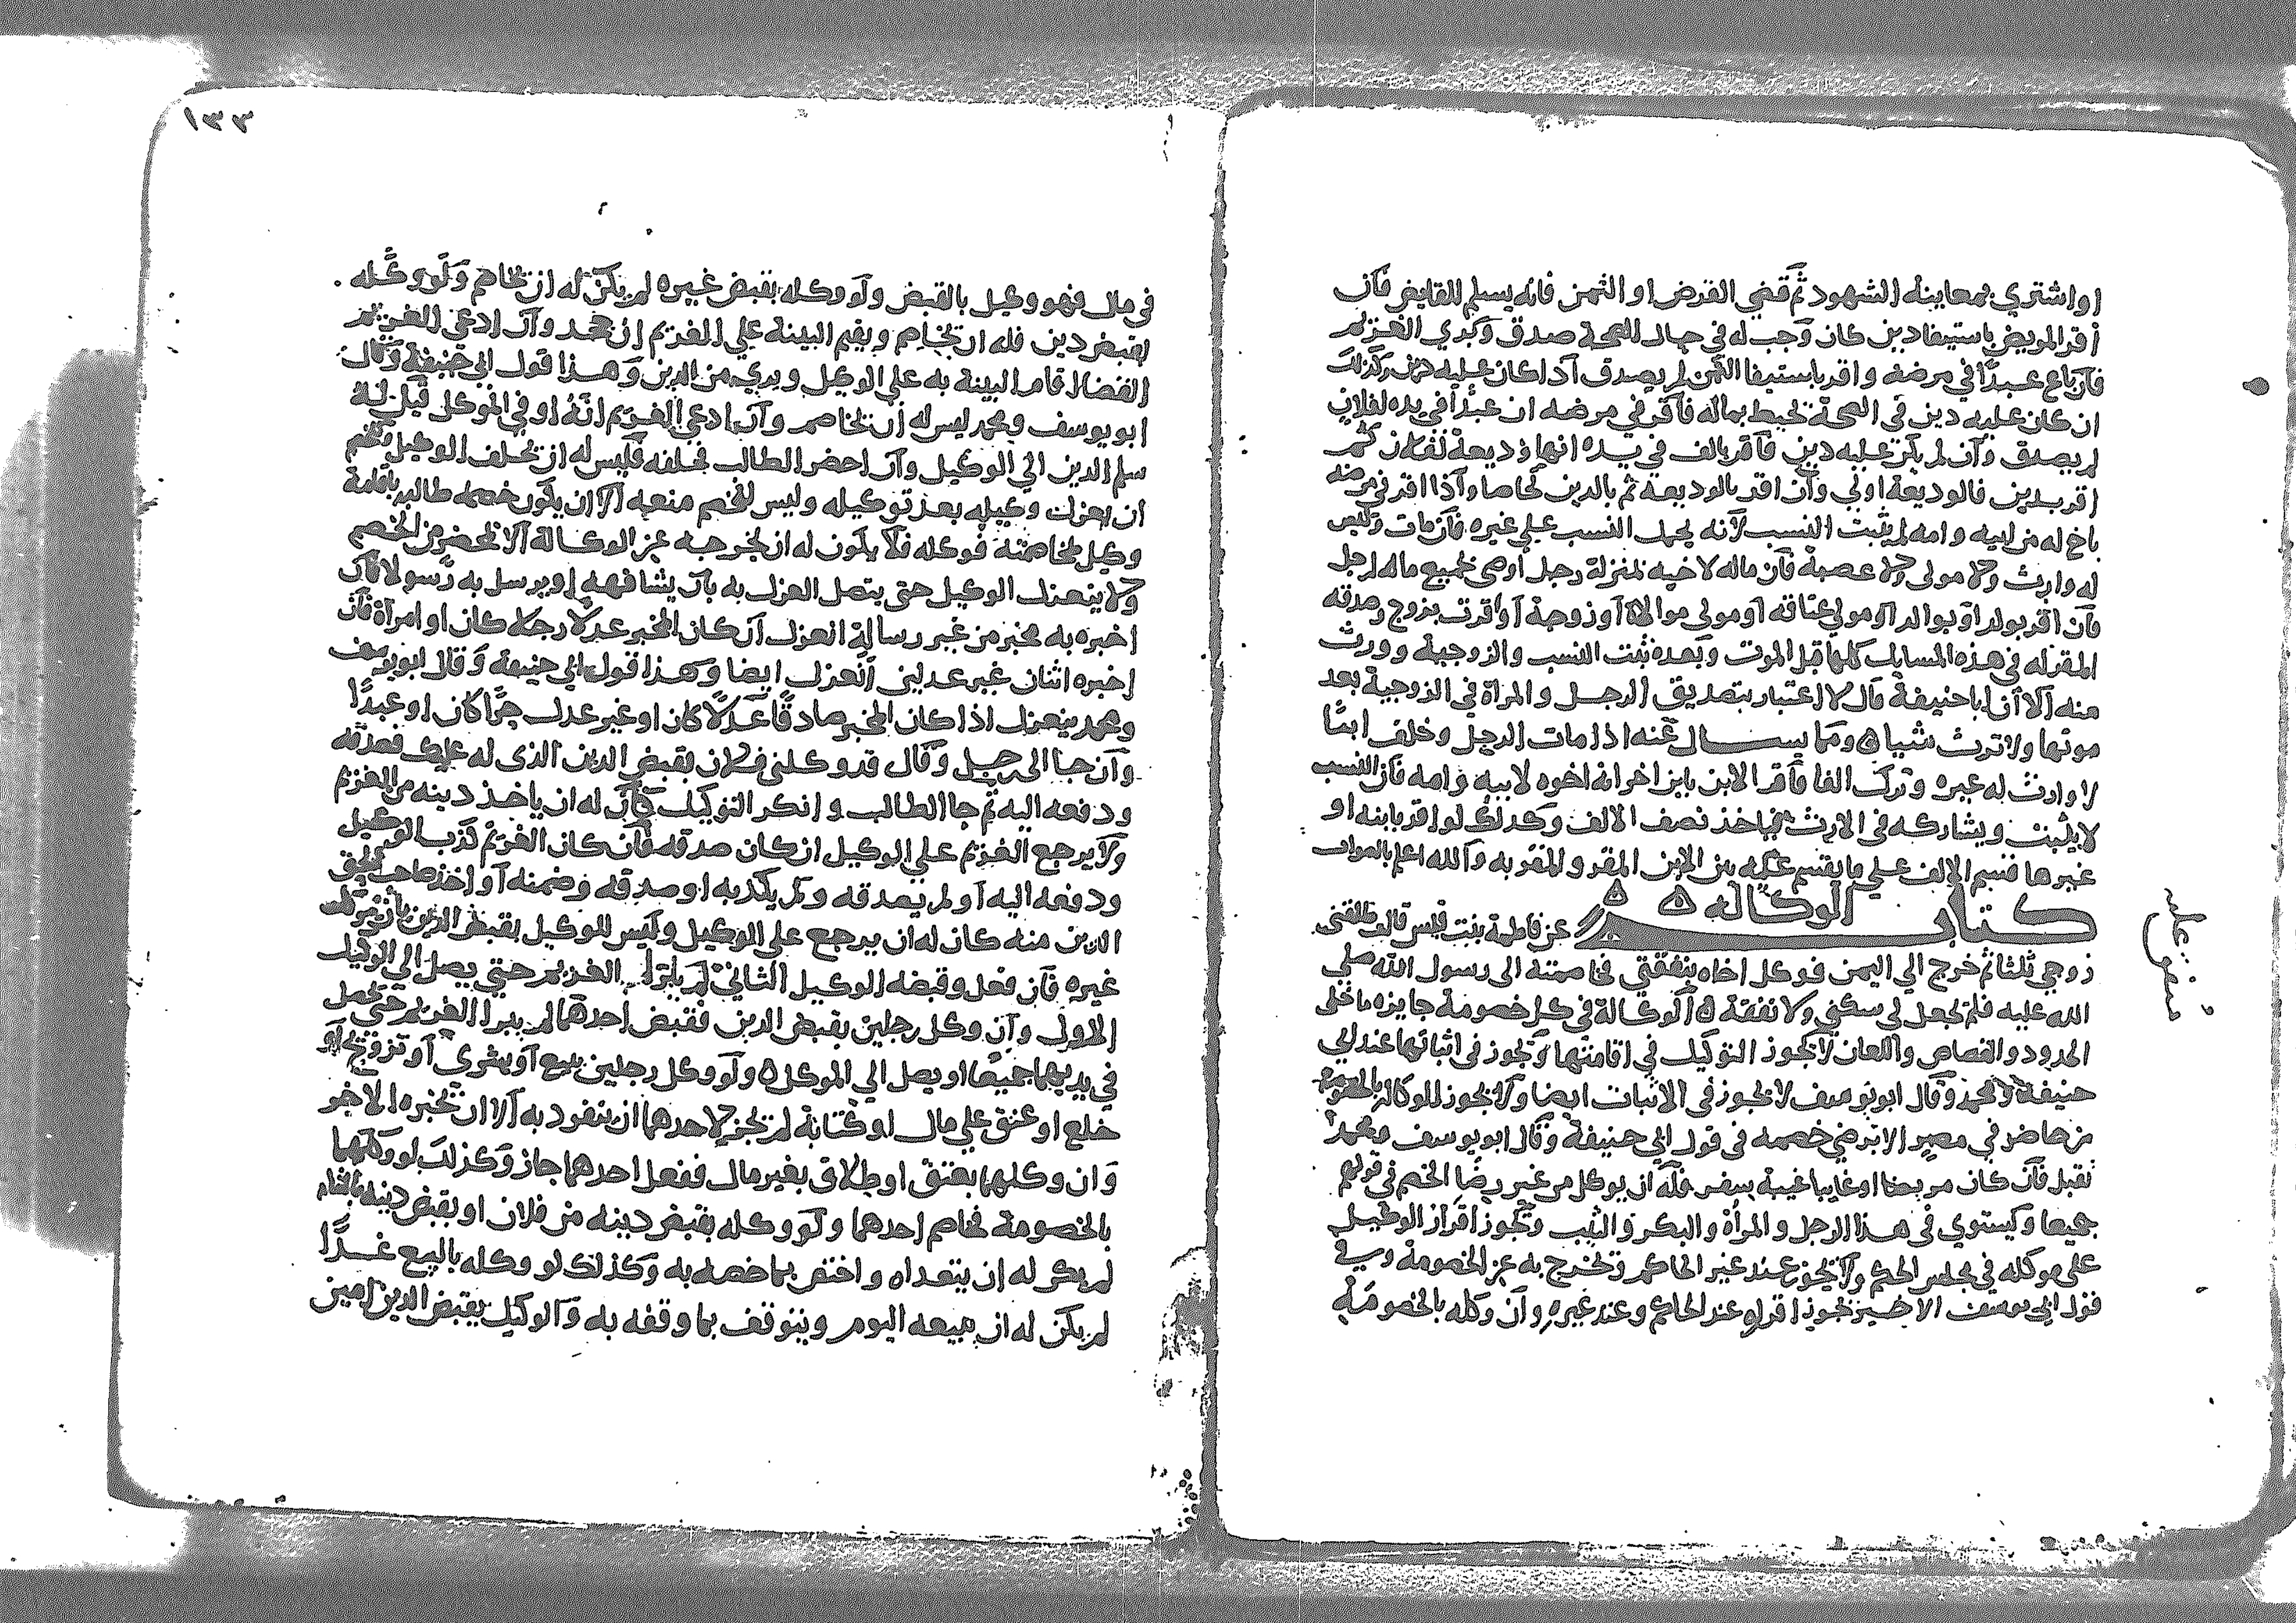 او اشتري بمعاينة الشهود ثم قضي القرض او الثمن فانه يسلم للقابض فان
أقر المريض باستيفاء دين كان وجب له في حال الصحة صدق وبري الغريم
فان باع عبدا في مرضه واقر باستيفا الثمن لم يصدق اذا كان عليه دين وكذلك
ان كان عليه دين في الصحة يحيط بماله فاقر في مرضه ان عبدا في يده لفلان
لم يصدق وان لم يكن عليه دين فاقر بالف في يده انها وديعة لفلان ثم
اقر بدين فالوديعة اولي وان اقر بالوديعة ثم بالدين تحاصا واذا اقر في مرضه
باخ له من ابيه وامه لم يثبت النسب لانه يحمل النسب علي غيره فان مات وليس
له وارث ولا مولى ولا عصبة فان ماله لاخيه بمنزلة رجل أوصى بجميع ماله لرجل
فان اقر بولد او بوالد او مولي عتاقه او مولي موالاة أو زوجة أو اقرت بزوج وصدقه
المقر له في هذه المسايل كلها قبل الموت وبعده ثبت النسب والزوجية وورث
منه الا أن ابا حنيفة قال لا اعتبار بتصديق الرجل والمراة في الزوجية بعد
موتها ولا ترث شيا ومما يسال عنه اذا مات الرجل وخلف ابنا
لا وارث له غيره وترك الفا فأقر الابن بابن اخر انه اخوه لابيه وامه فان النسب
لا يثبت ويشاركه في الارث فياخذ نصف الالف وكذلك لو اقر بابنه او
غيرها قسم الالف علي ما يقسم عليه بين الابن المقر والمقر به والله اعلم بالصواب
كتاب الوكالة عن فاطمة بنت قيس قالت طلقني
زوجي ثلثا ثم خرج الي اليمن فوكل اخاه بنفقتي فخاصمته الى رسول الله صلي
الله عليه فلم يجعل لي سكني ولا نفقة الوكالة في كل خصومة جايزه ما خلى
الحدود والقصاص واللعان لا يجوز التوكيل في إقامتها وتجوز في اثباتها عند ابي
حنيفة ومحمد وقال ابو يوسف لا يجوز في الاثبات ايضا ولا يجوز الوكالة بالخصومة
من حاضر في مصر الا برضي خصمه في قول ابي حنيفة وقال ابو يوسف ومحمد
تقبل فان كان مريضا او غايبا غيبة سفر فله ان يوكل من غير رضا الخصم في قولهم
جميعا ويستوي في هذا الرجل والمرأة والبكر والثيب وتجوز اقرار الوكيل
على موكله في مجلس الحكم ولا يجوز عند غير الحاكم وتخرج به عن الخصومة وفي
قول ابي يوسف الاخير يجوز اقراره عند الحاكم وعند غيره وان وكله بالخصومة
متفق عليه
١٣٣
في مال فهو وكيل بالقبض ولو وكله بقبض غيره لم يكن له ان يخاصم ولو وكله
بقبض دين فله ان يخاصم ويقيم البينة علي الغريم إن جحد وان ادعي الغريم
القضا اقام البينة به علي الوكيل وبري من الدين وهذا قول ابي حنيفة وقال
ابو يوسف ومحمد ليس له أن يخاصم وان ادعي الغريم انه اوفي الموكل قيل له
سلم الدين الي الوكيل وان احضر الطالب فحلفه فليس له ان يحلف الوكيل
أن يعزل وكيله بعد توكيله وليس لخصم منعه الا ان يكون خصمه طالبه باقامة
وكيل لمخاصمته فوكله فلا يكون له ان يخرجه عن الوكالة الا بحضر من الخصم
ولا ينعزل الوكيل حتي يتصل العزل به بان يشافهه او يرسل به رسولا فان
اخبره به مخبر من غير رسالة انعزل ان كان المخبر عدلا رجلا كان او امرأة فان
اخبره اثنان غير عدلين انعزل ايضا وهذا قول ابي حنيفة وقال ابو يوسف
ومحمد ينعزل اذا كان المخبر صادقا عدلا كان او غير عدل حرا كان او عبدا
وان جا الى رجل وقال قد وكلني فلان بقبض الدين الذي له عليك فصدقه
ودفعه اليه ثم جا الطالب وانكر التوكيل فان له ان ياخذ دينه من الغريم
ولا يرجع الغريم علي الوكيل ان كان صدقه فان كان الغريم كذب الوكيل
ودفعه اليه أو لم يصدقه ولم يكذبه او صدقه وضمنه أو اخذ صاحب الحق
الدين منه كان له ان يرجع علي الوكيل وليس للوكيل بقبض الدين بان يوكل
غيره فان فعل وقبضه الوكيل الثاني لم يبرا الغريم حتي يصل الي الوكيل
الاول وان وكل رجلين بقبض الدين فقبض أحدهما لم يبرا الغريم حتي يحصل
في يديهما جميعا او يصل الي الموكل ولو وكل رجلين ببيع أو بشري أو تزويج او
خلع او عتق علي مال او كتابة لم تجز لاحدهما ان ينفرد به الا ان تخبره الاخر
وان وكلهما بعتق او طلاق بغير مال ففعل احدهما جاز وكذلك لو وكلهما
بالخصومة فخاصم احدهما ولو وكله بقبض دينه من فلان او بقبض دينه بالشام
لم يكن له ان يتعداه واختص بما خصه به وكذلك لو وكله بالبيع غدا
لم يكن له ان يبيعه اليوم ويتوقف بما وقفه به والوكيل بقبض الدين امين